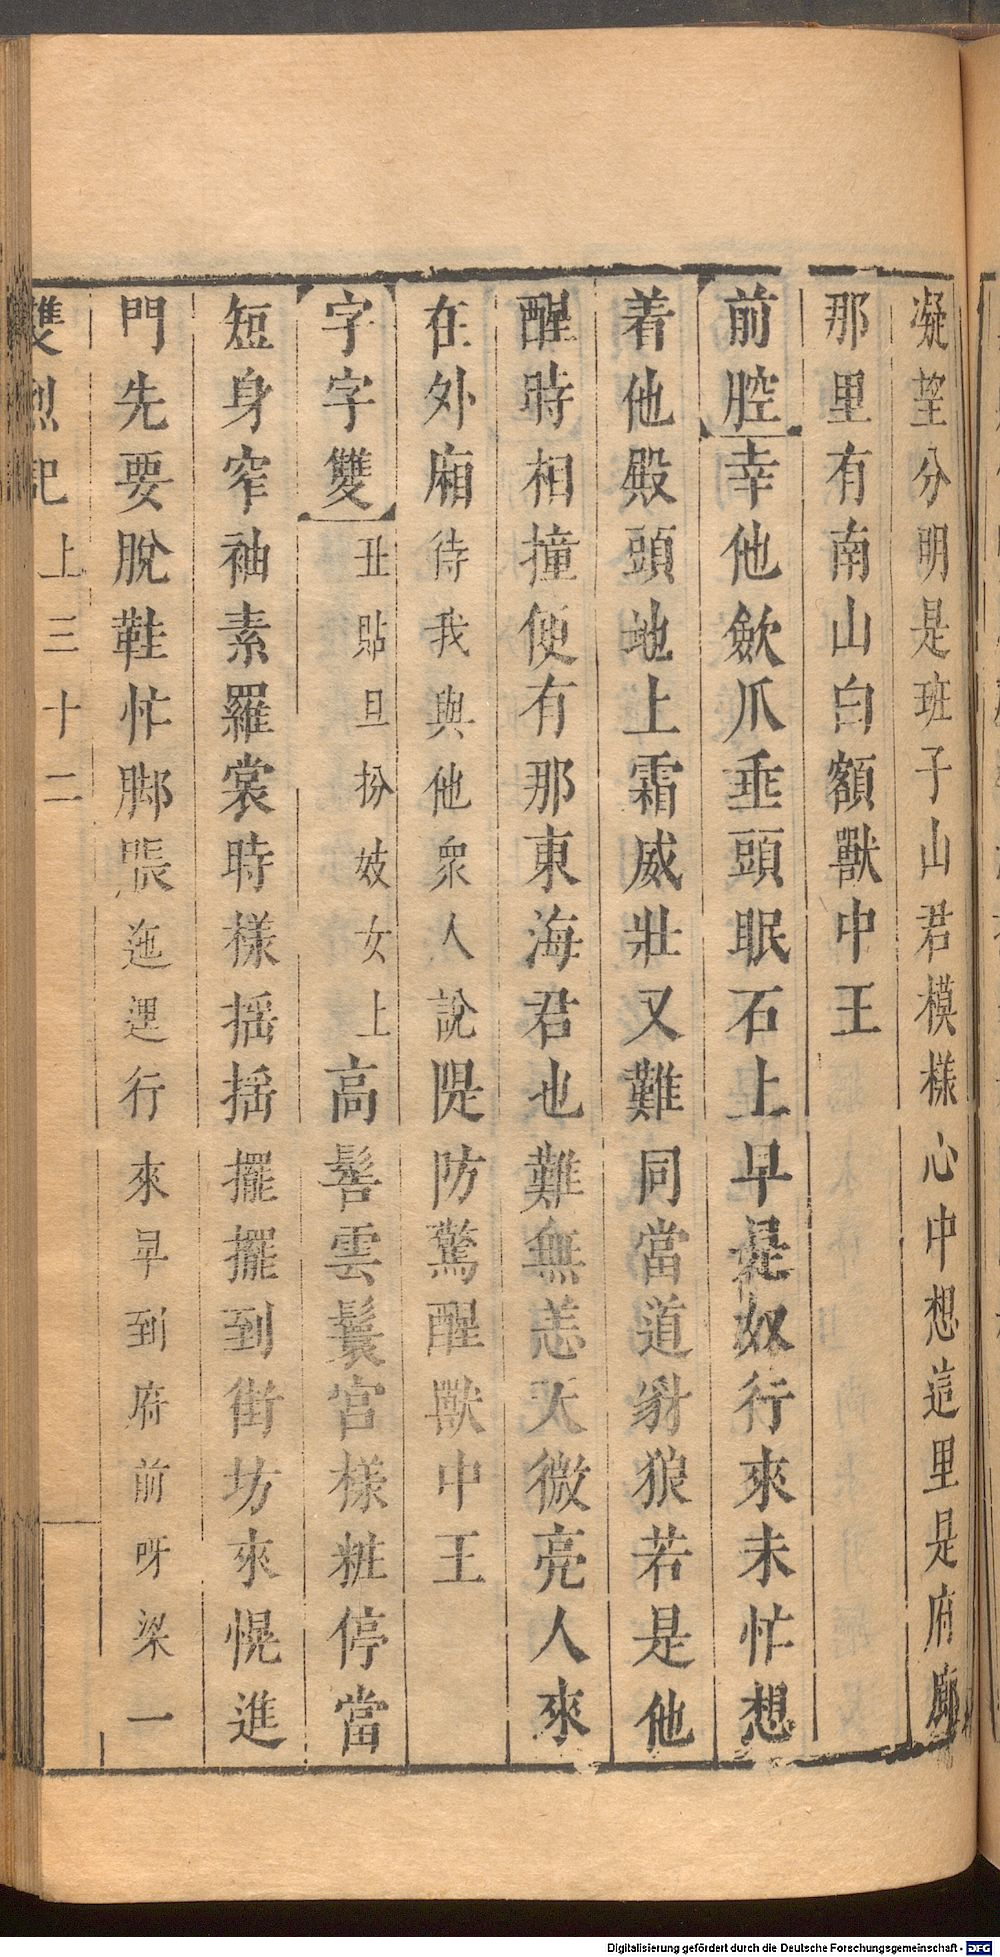 凝望分明是班子山君模樣心中想這里是府廊
那里有南山白額獸中王
前腔幸他斂爪垂頭眠石上早是奴行來未忙想
着他殿頭地上霜威壯又難同當道豺狼若是他
醒時相撞便有那東海君也難無恙天微亮人來
在外廂待我與他衆人說隄防驚醒獸中王
字字雙丑貼旦扮妓女上高髻雲鬟宮樣粧停當
短身窄袖素羅裳時樣搖搖擺擺到街坊來愰進
門先要脫鞋忙脚脹迤逦行來早到府前呀梁一
雙烈記上三十二
Digitalisierung gefördert durch die Deutsche Forschungsgemeinschaft - DFG